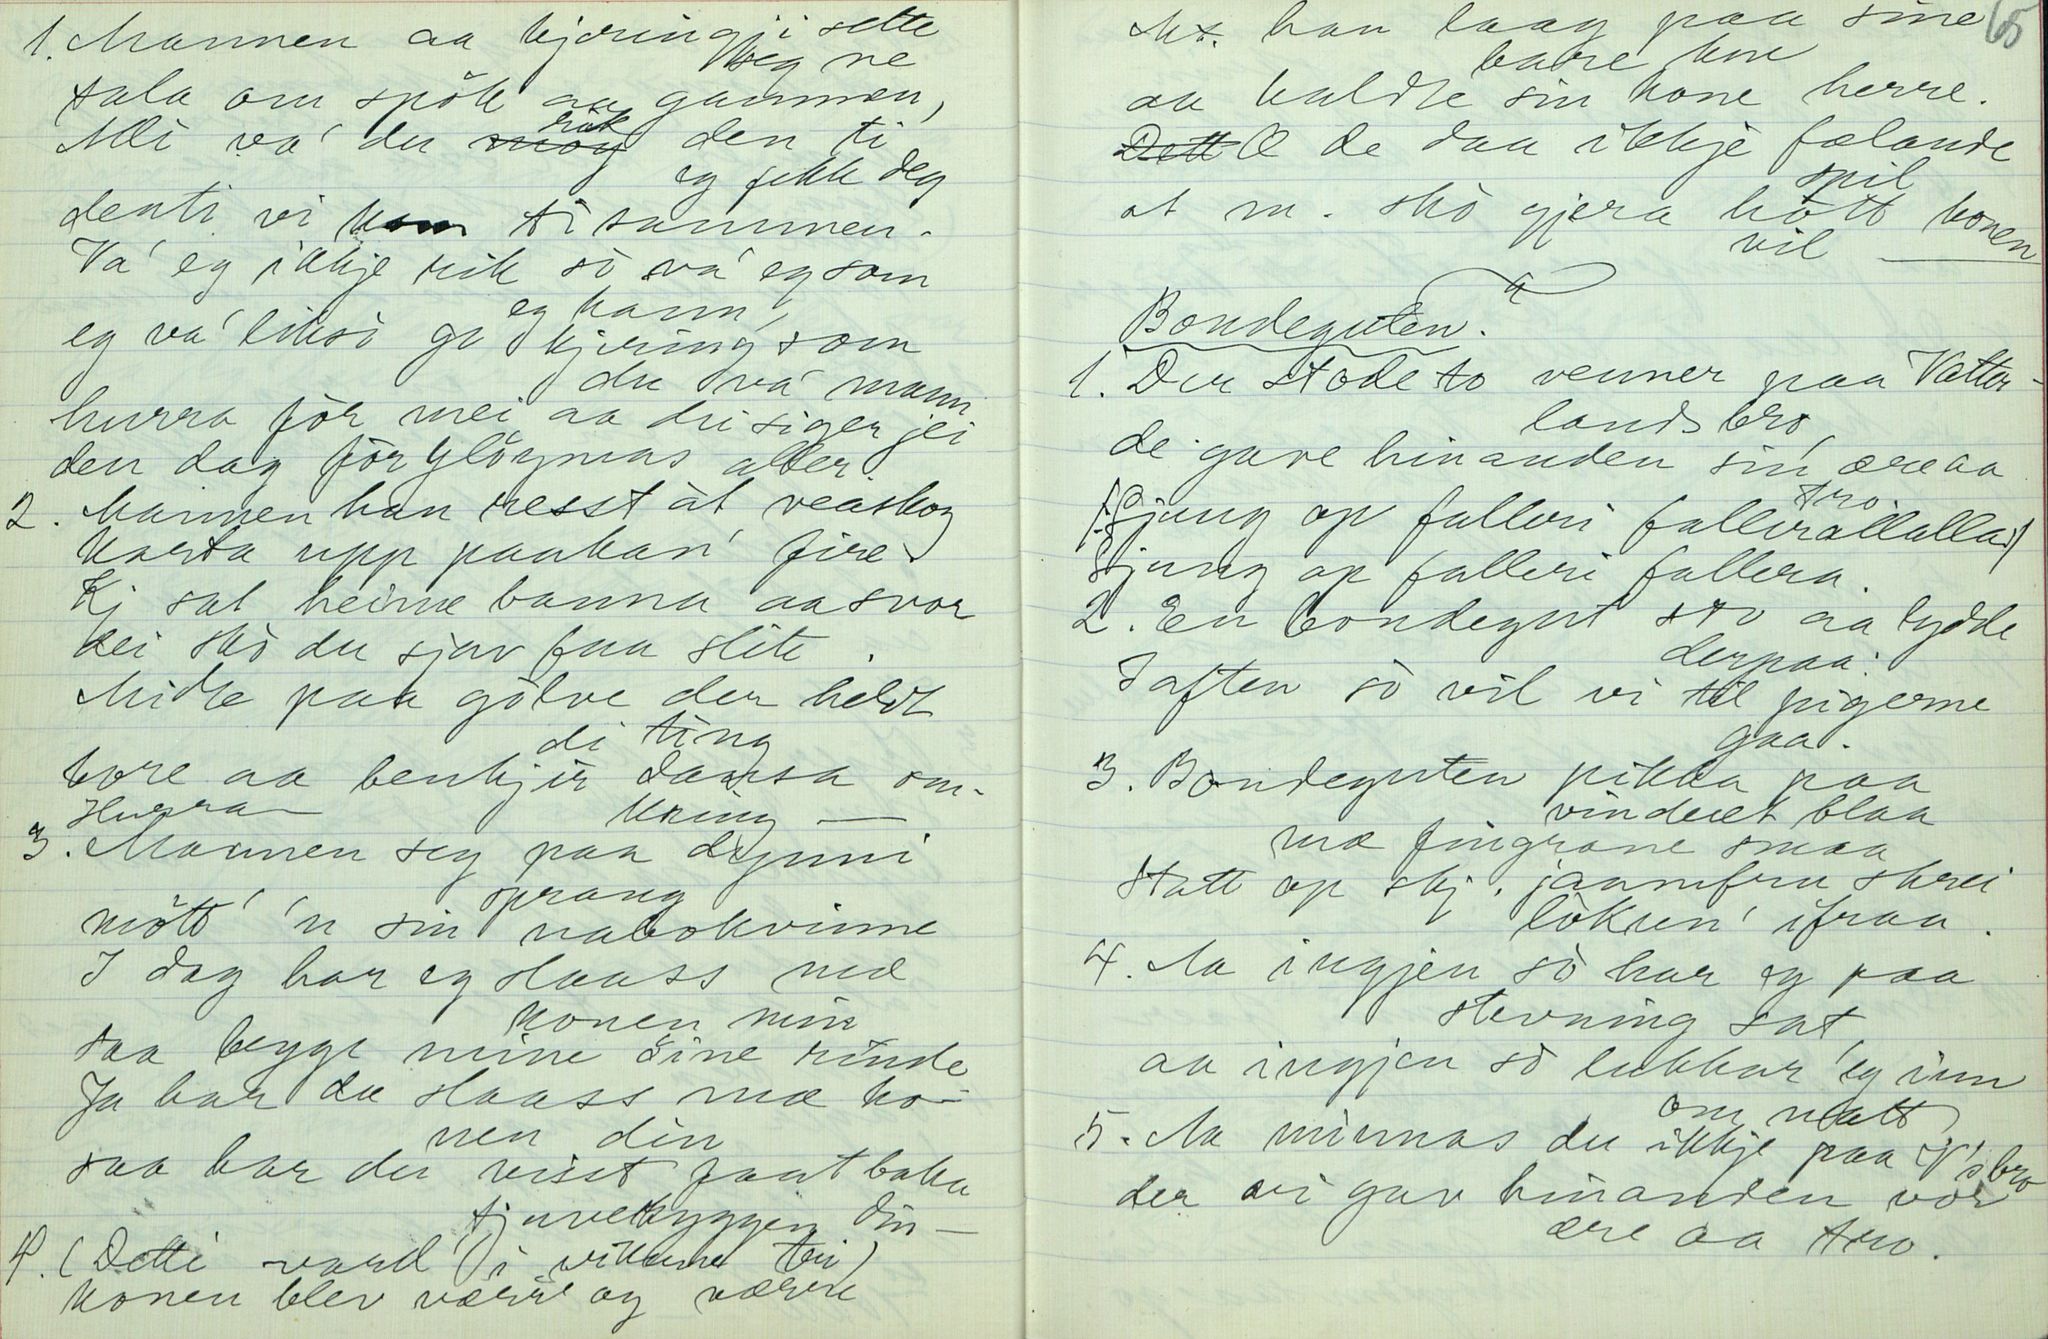 1. Mannen aa kjeringji sette
seg ne
tala om spök aa gammen,
Mei va' du rik den ti
eg fekk deg
denti vi kom ti sammen.
Va' eg ikkje rik sò va' eg som
eg kann,
eg va' likso go kjering, som
du va' mann
hurra för mei aa du siger jei
den dag förglöymas aller.
2. Mannen han resst åt veaskog
Kj sat heime banna aa svor
dei skò du sjav faa slite.
Midt paa gölve der heldt
di ting
bore aa benkjir dansa om-
kring —
Hurra —
3. Mannen seg paa dynni
sprang
mött' 'n sin nabokvinne
I dag har eg slaass mæ
konen min
saa begge mine öine rinde
Ja har du slaass mæ ko-
nen din
saa har du visst faat baka
tjuvekyggen din —
4. (Dette vard i vikunn tri)
Konen blev værre og værre
65
M. han laag paa sine
bare kne
aa kaldte sin kone herre.
Dett E de daa ikkje fælande
spil
at m. skò gjera kòtt konen
vil
Bondeguten.
1. Der stode to venner paa Vatter-
lands bro,
de gave hinanden sin ære aa
tro
/: Sjung op falleri fallerallalla :/
Sjung op falleri fallera.
2. En bondegut sto aa lydde
derpaa.
I aften sò vil vi til pigerne
gaa.
3. Bondeguten pikka paa
vinduet blaa
mæ fingrane smaa
Statt op skj. jaamfru skrei
lòkun' ifraa.
4. Aa ingjen sò har eg paa
stevning sat
aa ingjen sò lukkar eg inn
om natt
5. Aa minnas du ikkje paa V's bro
der vi gav hinanden vor
ære aa tro.